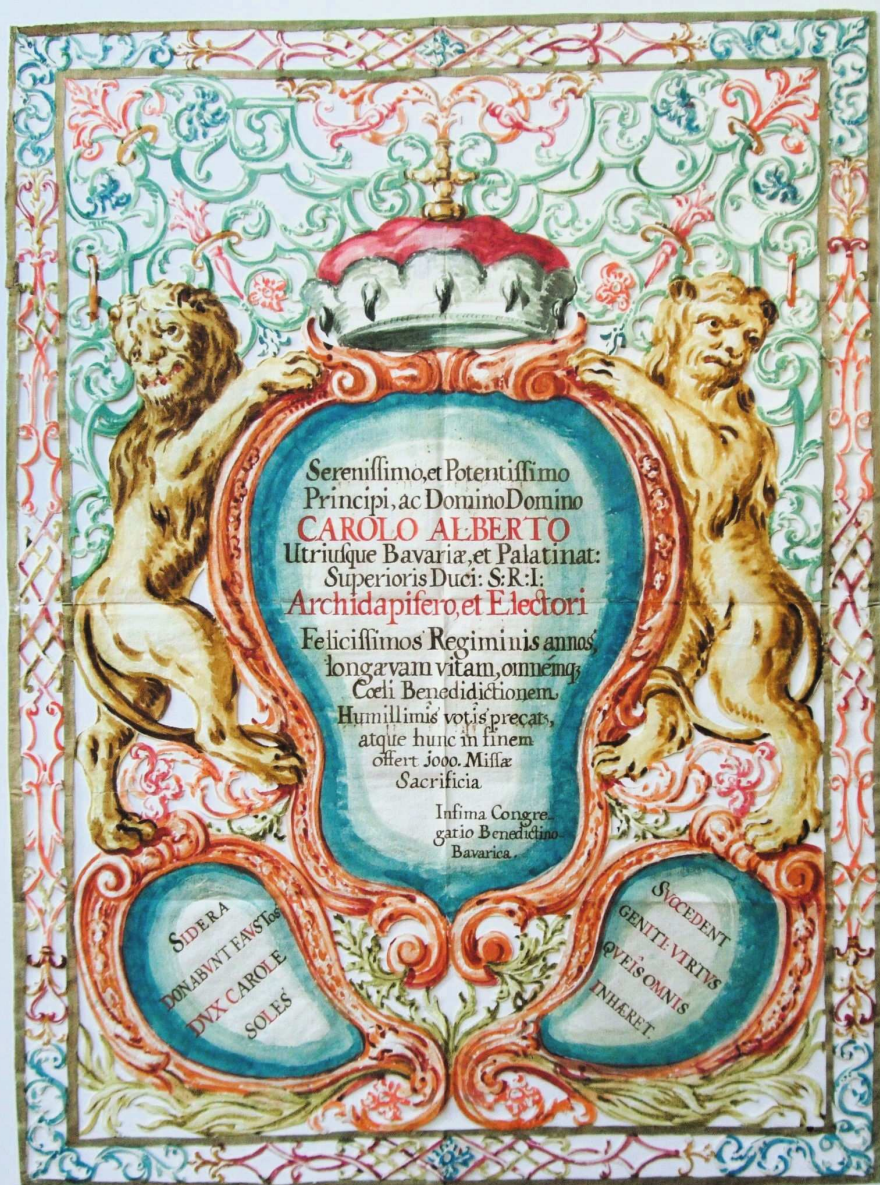 Sereniſſimo, et Potentiſſimo
Principi, ac Domino Domino
CAROLO ALBERTO
Utriusque Bavariæ, et Palatinat:
Superioris Duci: S: R: I:
Archidapifero, et Electori
Feliciſſimos Regiminis annos,
longævam vitam, omnémq;
Cœli Benedidictionem
Humillimis votis precats,
atque hunc in finem
offert 1000. Miſſæ
Sacrificia
Infima Congre-
gatio Benedictino-
Bavarica.
SIDERA
DONABVNT FAVSTOS
DVX CAROLE
SOLES
SVCCEDENT
GENITI: VIRTVS
QVEIS OMNIS
INHÆRET.